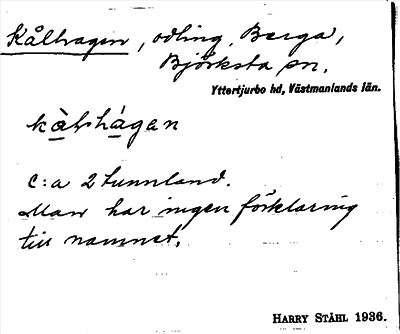 Kålhagen, odling, Berga,
Björksta sn.
Yttertjurbo hd, Västmanlands län.
kàlhágan
C:a 2 tunnland.
Man har ingen förklaring
till namnet.
HARRY STÅHL 1936.